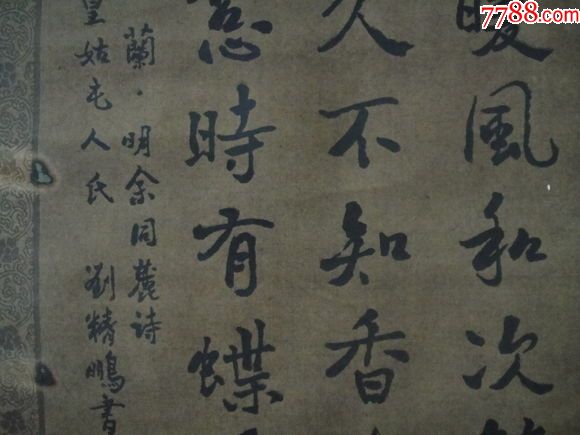 7788.com
暖風和次
久不知香
時有蝶
蘭·明余同麓诗
皇姑屯人氏 劉精鵬書